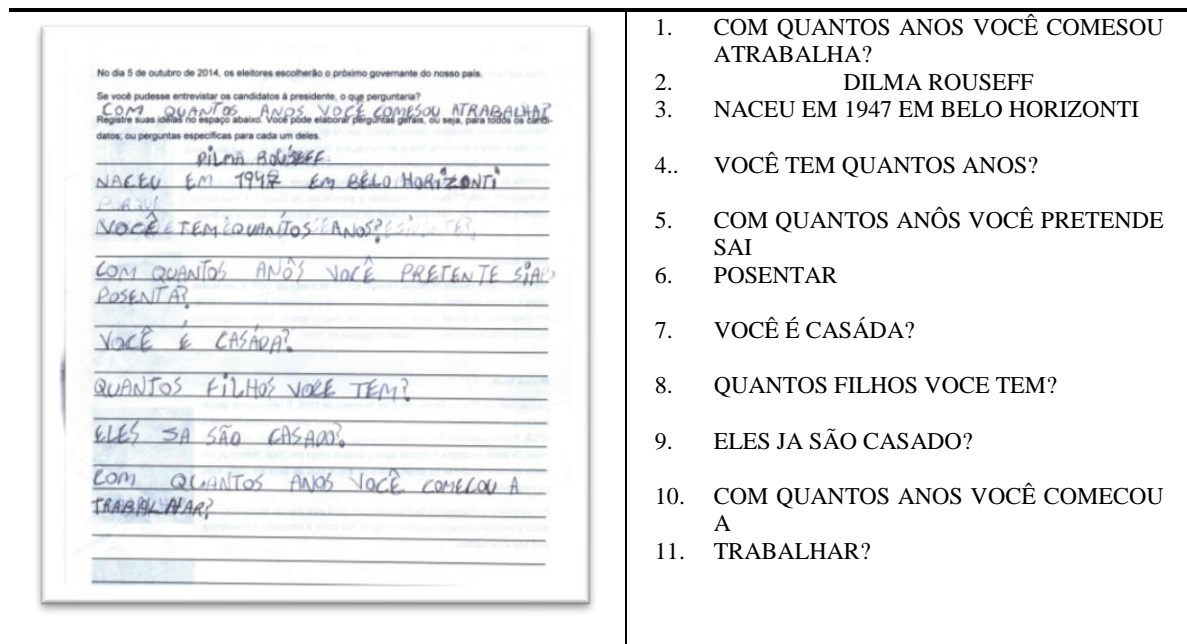 No dia 5 de outubro de 2014, os eleitores escolherão o próximo governante do nosso país.
Se você pudesse entrevistar os candidatos à presidente, o que perguntaria?
COM QUANTOS ANOS VOCÊ COMESOU ATRABALHA?
Registre suas ideias no espaço abaixo. Você pode elaborar perguntas gerais, ou seja, para todos os candi-
datos; ou perguntas específicas para cada um deles.
DILMA ROUSEFF
NACEU EM 1947 EM BÉLO HORIZONTI
VOCÊ TEM QUANTOS ANOS?
COM QUANTOS ANÔS VOCÊ PRETENTE
POSENTA?
VOCÊ É CASÁDA?
QUANTOS FILHOS VOCE TEM?
ELES SA SÃO CASADO?
COM QUANTOS ANOS VOCÊ COMECOU A
TRABALHAR?
1. COM QUANTOS ANOS VOCÊ COMESOU
ATRABALHA?
2. DILMA ROUSEFF
3. NACEU EM 1947 EM BELO HORIZONTI
4.. VOCÊ TEM QUANTOS ANOS?
5. COM QUANTOS ANÔS VOCÊ PRETENDE
SAI
6. POSENTAR
7. VOCÊ É CASÁDA?
8. QUANTOS FILHOS VOCE TEM?
9. ELES JA SÃO CASADO?
10. COM QUANTOS ANOS VOCÊ COMECOU
A
11. TRABALHAR?